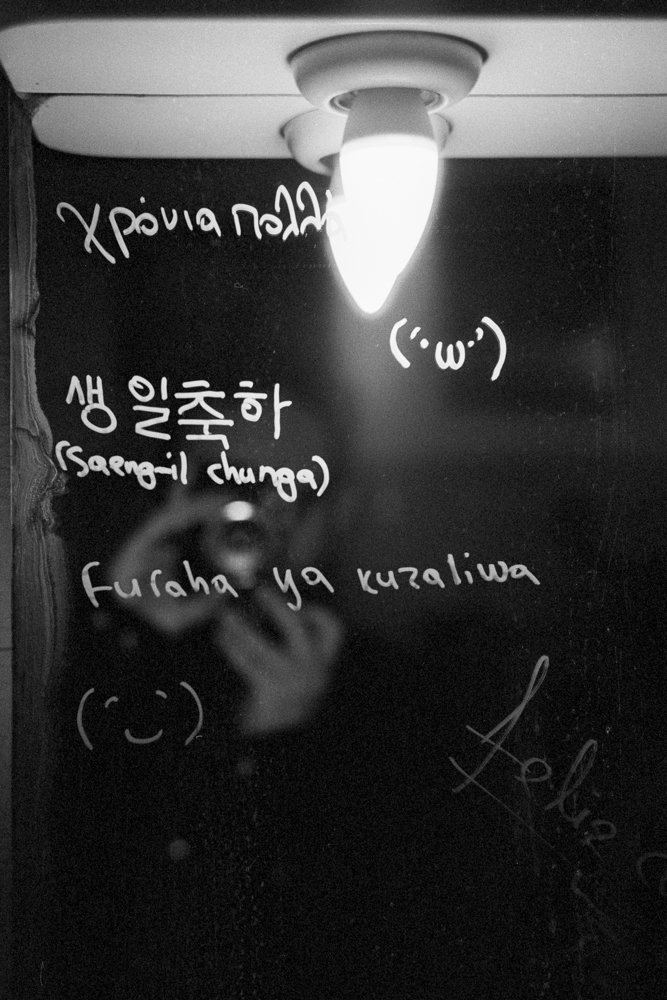 χρόνια πολλά
(´･ω･`)
생일축하
(Saeng-il chunga)
Furaha ya kuzaliwa
(´‿`)